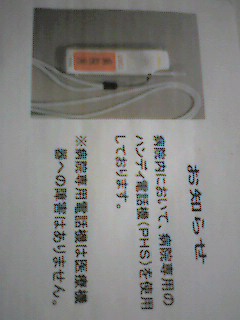 お知らせ
病院内において、病院専用の
ハンディ電話機(PHS)を使用
しております。
※病院専用電話機は医療機
器への障害はありません。